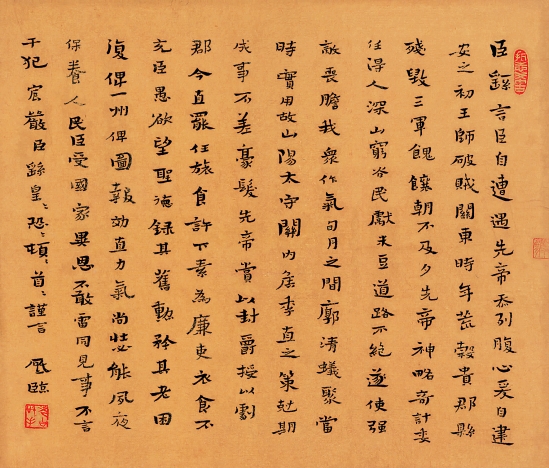 臣繇言臣自遭遇先帝忝列腹心爰自建
安之初王師破賊關東時年荒穀貴郡縣
殘毀三軍餽饟朝不及夕先帝神略奇計委
任得人深山窮谷民獻米豆道路不絕遂使強
敵喪膽我衆作氣旬月之間廓清蟻聚當
時實用故山陽太守關內侯季直之策尅期
成事不差豪髮先帝賞以封爵授以劇
郡今直罷任旅食許下素為廉吏衣食不
充臣愚欲望聖德錄其舊勳矜其老困
復俾一州俾圖報効直力氣尚壯必能夙夜
保養人民臣受國家異恩不敢雷同見事不言
干犯宸嚴臣繇皇〻恐〻頓〻首〻謹言 臨